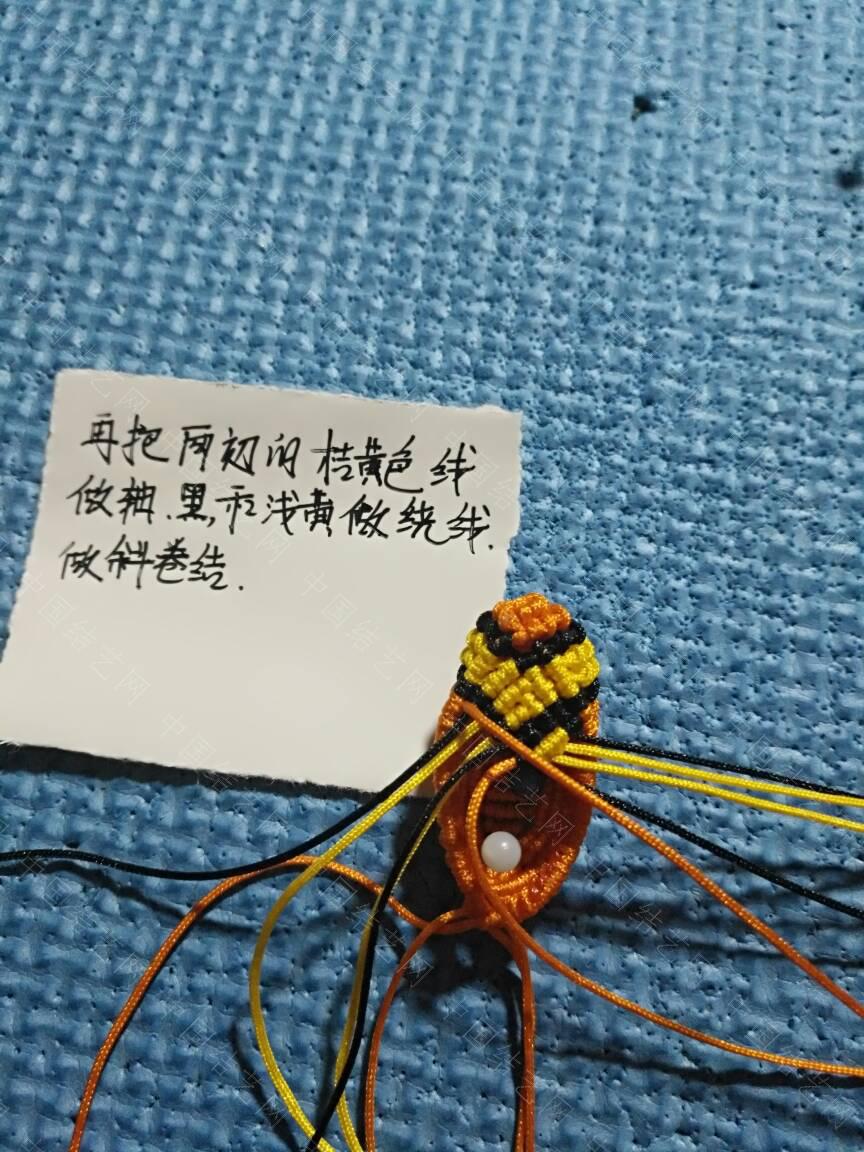 再把两初的桔黄色线
做轴.黑,和浅黄做绕线.
做斜卷结.
中国结艺网